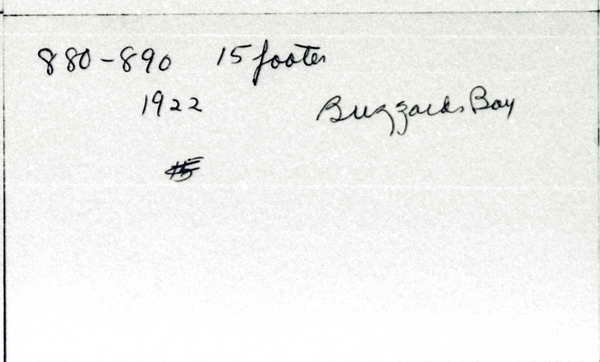 880-890 15 footer
1922 Buzzards Bay